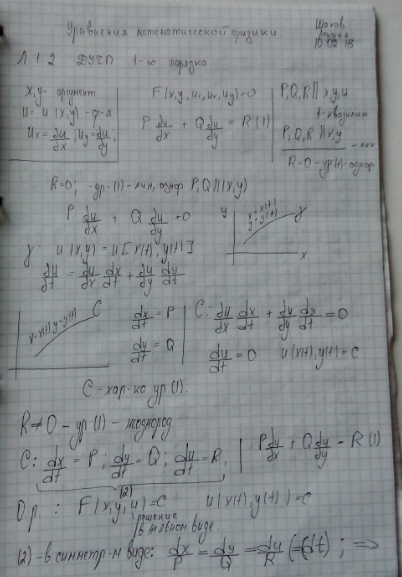 Уравнения математической физики
Л 1.2 ДУЧП 1-го порядка
x, y - аргумент
u = u(x,y) - ф-я
u_x = ∂u/∂x, u_y = ∂u/∂y
F(x, y, u, u_x, u_y) = 0
P ∂u/∂x + Q ∂u/∂y = R (1)
P, Q, R || x, y, u
P, Q, R || x, y - лин
R = 0 - ур (1) - однор
R = 0; - ур-(1) - лин, однор. P, Q || (x, y)
P ∂u/∂x + Q ∂u/∂y = 0
y
x = x(t)
y = y(t)
γ
x
γ: u(x,y) = u[x(t), y(t)]
∂u/∂t = ∂u/∂x dx/dt + ∂u/∂y dy/dt
x = x(t), y = y(t) C
dx/dt = P
dy/dt = Q
C: ∂u/∂x dx/dt + ∂u/∂y dy/dt = 0
du/dt = 0 u(x(t), y(t)) = C
C - хар-ка ур (1).
R ≠ 0 - ур (1) - неоднород.
C: dx/dt = P; dy/dt = Q; du/dt = R,
(2)
P ∂u/∂x + Q ∂u/∂y = R (1)
О.р.: F(x, y, u) = C u(x(t), y(t)) = C
решение
в неявном виде
(2) - в симметр-м виде: dx/P = dy/Q = du/R (= dt); =>